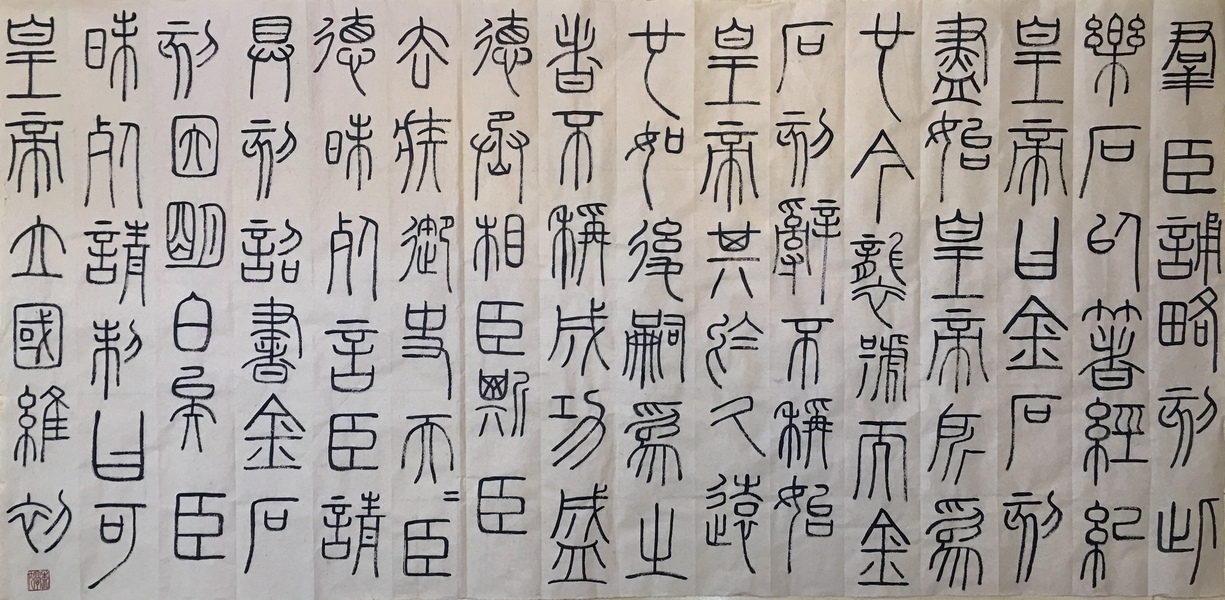 羣臣誦略刻此
樂石以著經紀
皇帝曰金石刻
盡始皇帝所爲
也今襲號而金
石刻辭不稱始
皇帝其於久遠
也如後嗣爲之
者不稱成功盛
德丞相臣斯臣
去疾御史夫=臣
德昧死言臣請
具刻詔書金石
刻因明白矣臣
昧死請制曰可
皇帝立國維初